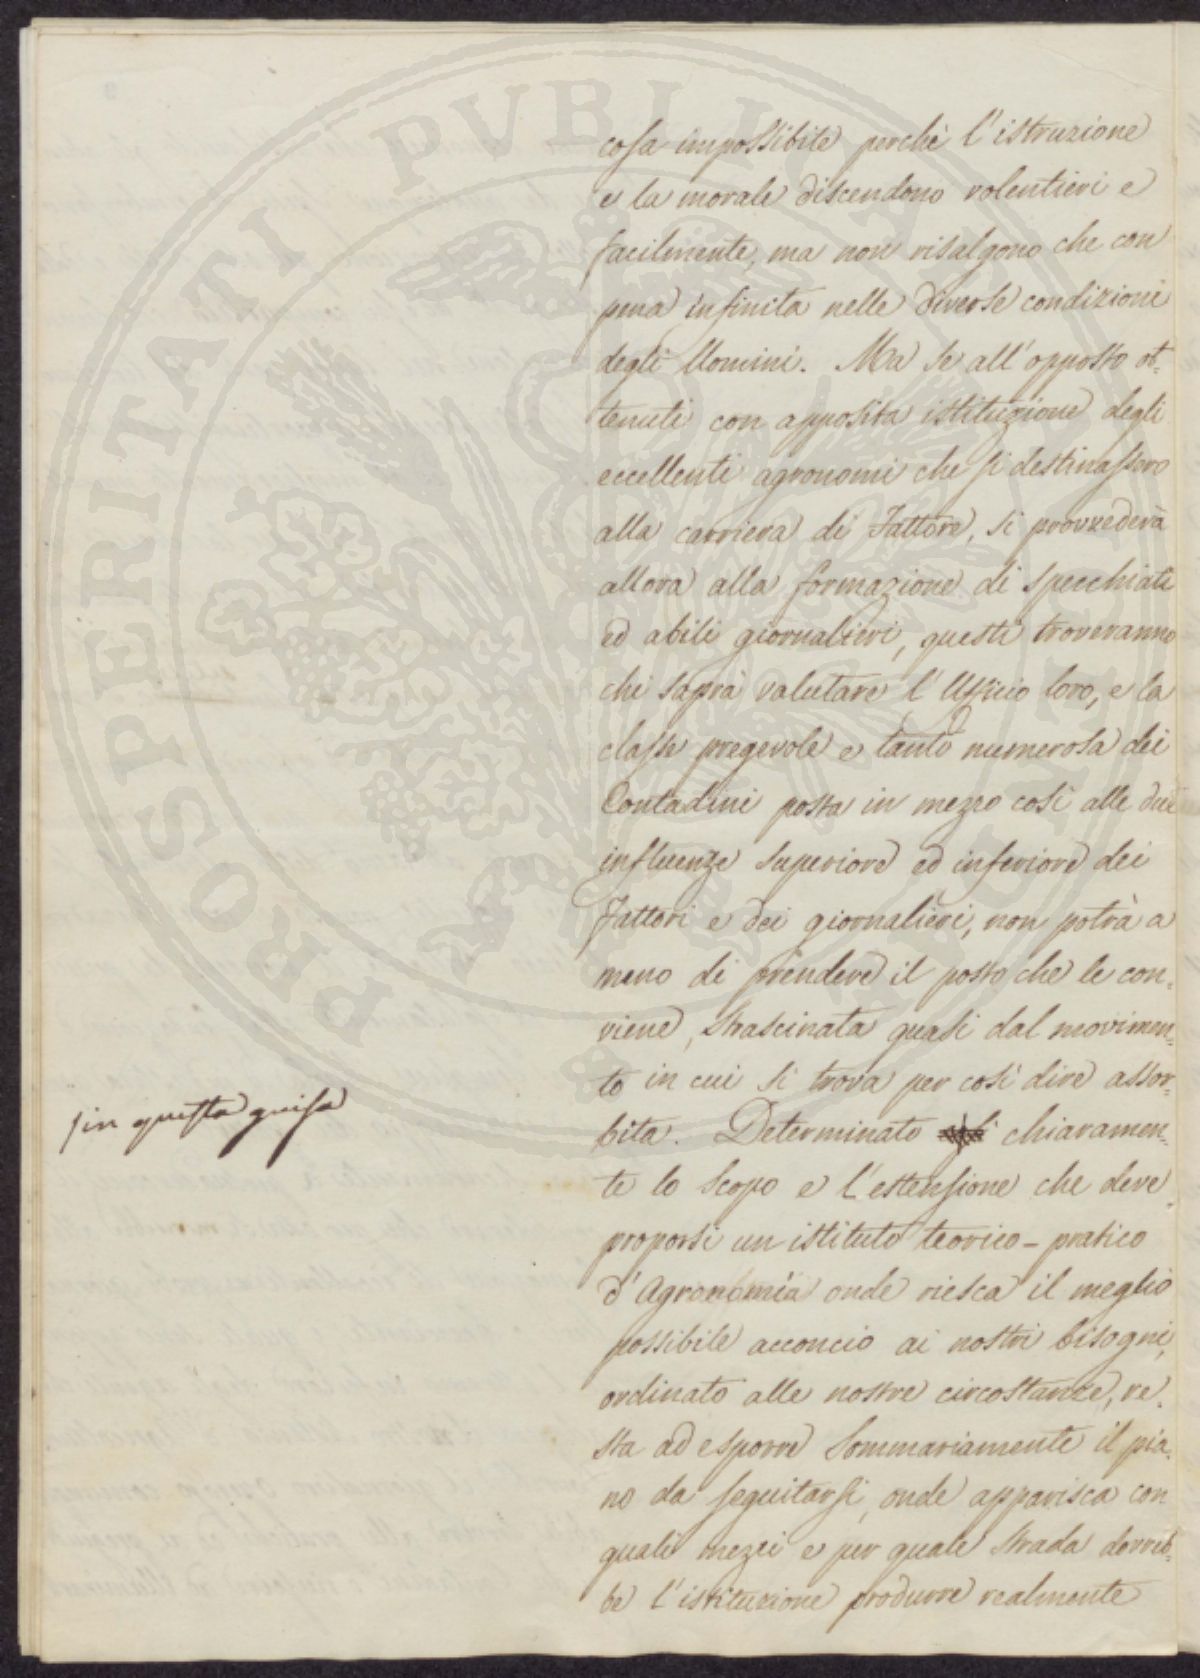 cosa impossibile perchè l'istruzione
e la morale discendono volentieri e
facilmente, ma non risalgono che con
pena infinita nelle diverse condizioni
degli Uomini. Ma se all'opposto ot=
tenuti con apposita istituzione degli
eccellenti agronomi che si destinassero
alla carriera di Fattore, si provvederà
allora alla formazione di specchiati
ed abili giornalieri, questi troveranno
chi saprà valutare l'Ufficio loro, e la
classe pregevole e tanto numerosa dei
Contadini posta in mezzo così alle due
influenze superiore ed inferiore dei
Fattori e dei giornalieri, non potrà a
meno di prendere il posto che le con=
viene, strascinata quasi dal movimen=
to in cui si trova per così dire assor=
bita. Determinato chiaramen=
/in questa guisa
te lo scopo e l'estensione che deve
proporsi un istituto teorico-pratico
d'Agronomia onde riesca il meglio
possibile acconcio ai nostri bisogni,
ordinato alle nostre circostanze, re=
sta ad esporre sommariamente il pia=
no da seguitarsi, onde apparisca con
quali mezzi e per quale strada dovreb=
be l'istituzione produrre realmente
PROSPERITATI PVBLICAE